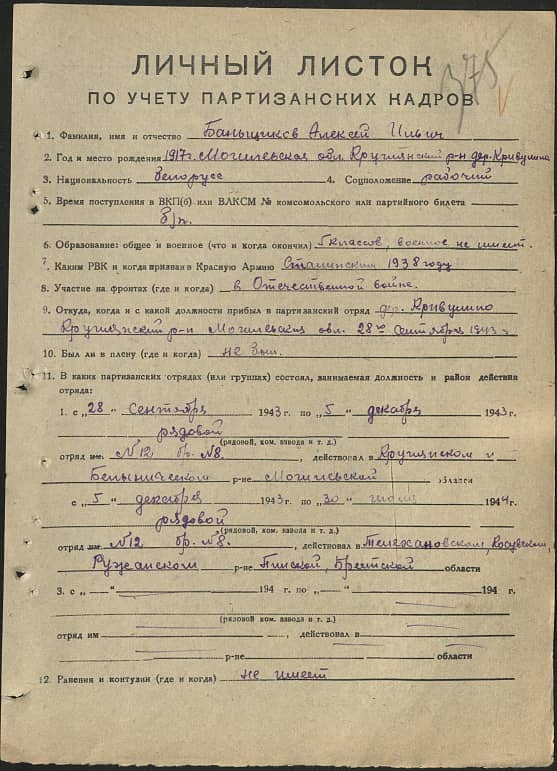 375
ЛИЧНЫЙ ЛИСТОК
ПО УЧЕТУ ПАРТИЗАНСКИХ КАДРОВ
1. Фамилия, имя и отчество Баньщиков Алексей Ильич
2. Год и место рождения 1917г. Могилевская обл. Круглянский р-н дер. Кривулино
3. Национальность белорусс 4. Соцположение рабочий
5. Время поступления в ВКП(б) или ВЛКСМ № комсомольского или партийного билета
б/п.
6. Образование: общее и военное (что и когда окончил) 5 классов, военное не имеет.
7. Каким РВК и когда призван в Красную Армию Сталинским 1938 году
8. Участие на фронтах (где и когда) в Отечественной войне.
9. Откуда, когда и с какой должности прибыл в партизанский отряд дер. Кривулино
Круглянский р-н Могилевская обл. 28го Сентября 1943 г
10. Был ли в плену (где и когда) не был.
11. В каких партизанских отрядах (или группах) состоял, занимаемая должность и район действия
отряда:
1. с „28" Сентября 1943 г. по „5" декабря 1943 г.
рядовой
(рядовой, ком. взвода и т. д.)
отряд им. №12 бр. №8. , действовал в Круглянском и
Белыническом р-не Могилевской области
с „5" декабря 1943 г. по „30" 1944 г.
рядовой
(рядовой, ком. взвода и т. д.)
отряд им. №12 бр. №8. , действовал в Телехановском, Косувском,
Ружанском р-не Пинской, Брестской области
3. с „ " 194 г. по „ " 194 г.
(рядовой ком. взвода и т. д.)
отряд им , действовал в
р-не области
12. Ранения и контузии (где и когда) не имеет